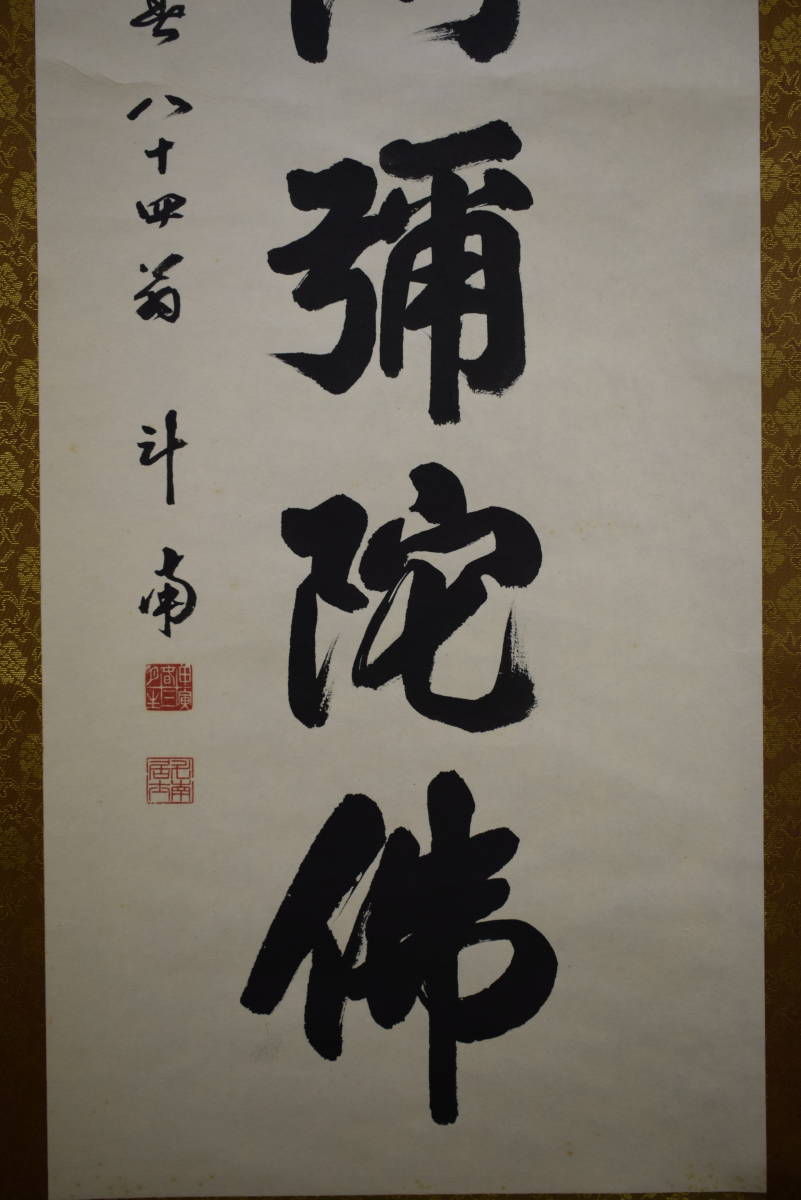 阿彌陀佛
春 八十四翁 斗南